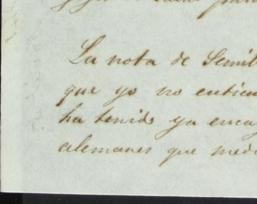 La nota de Semil
que yo no entien
ha tenido ya enca
alemanes que medi